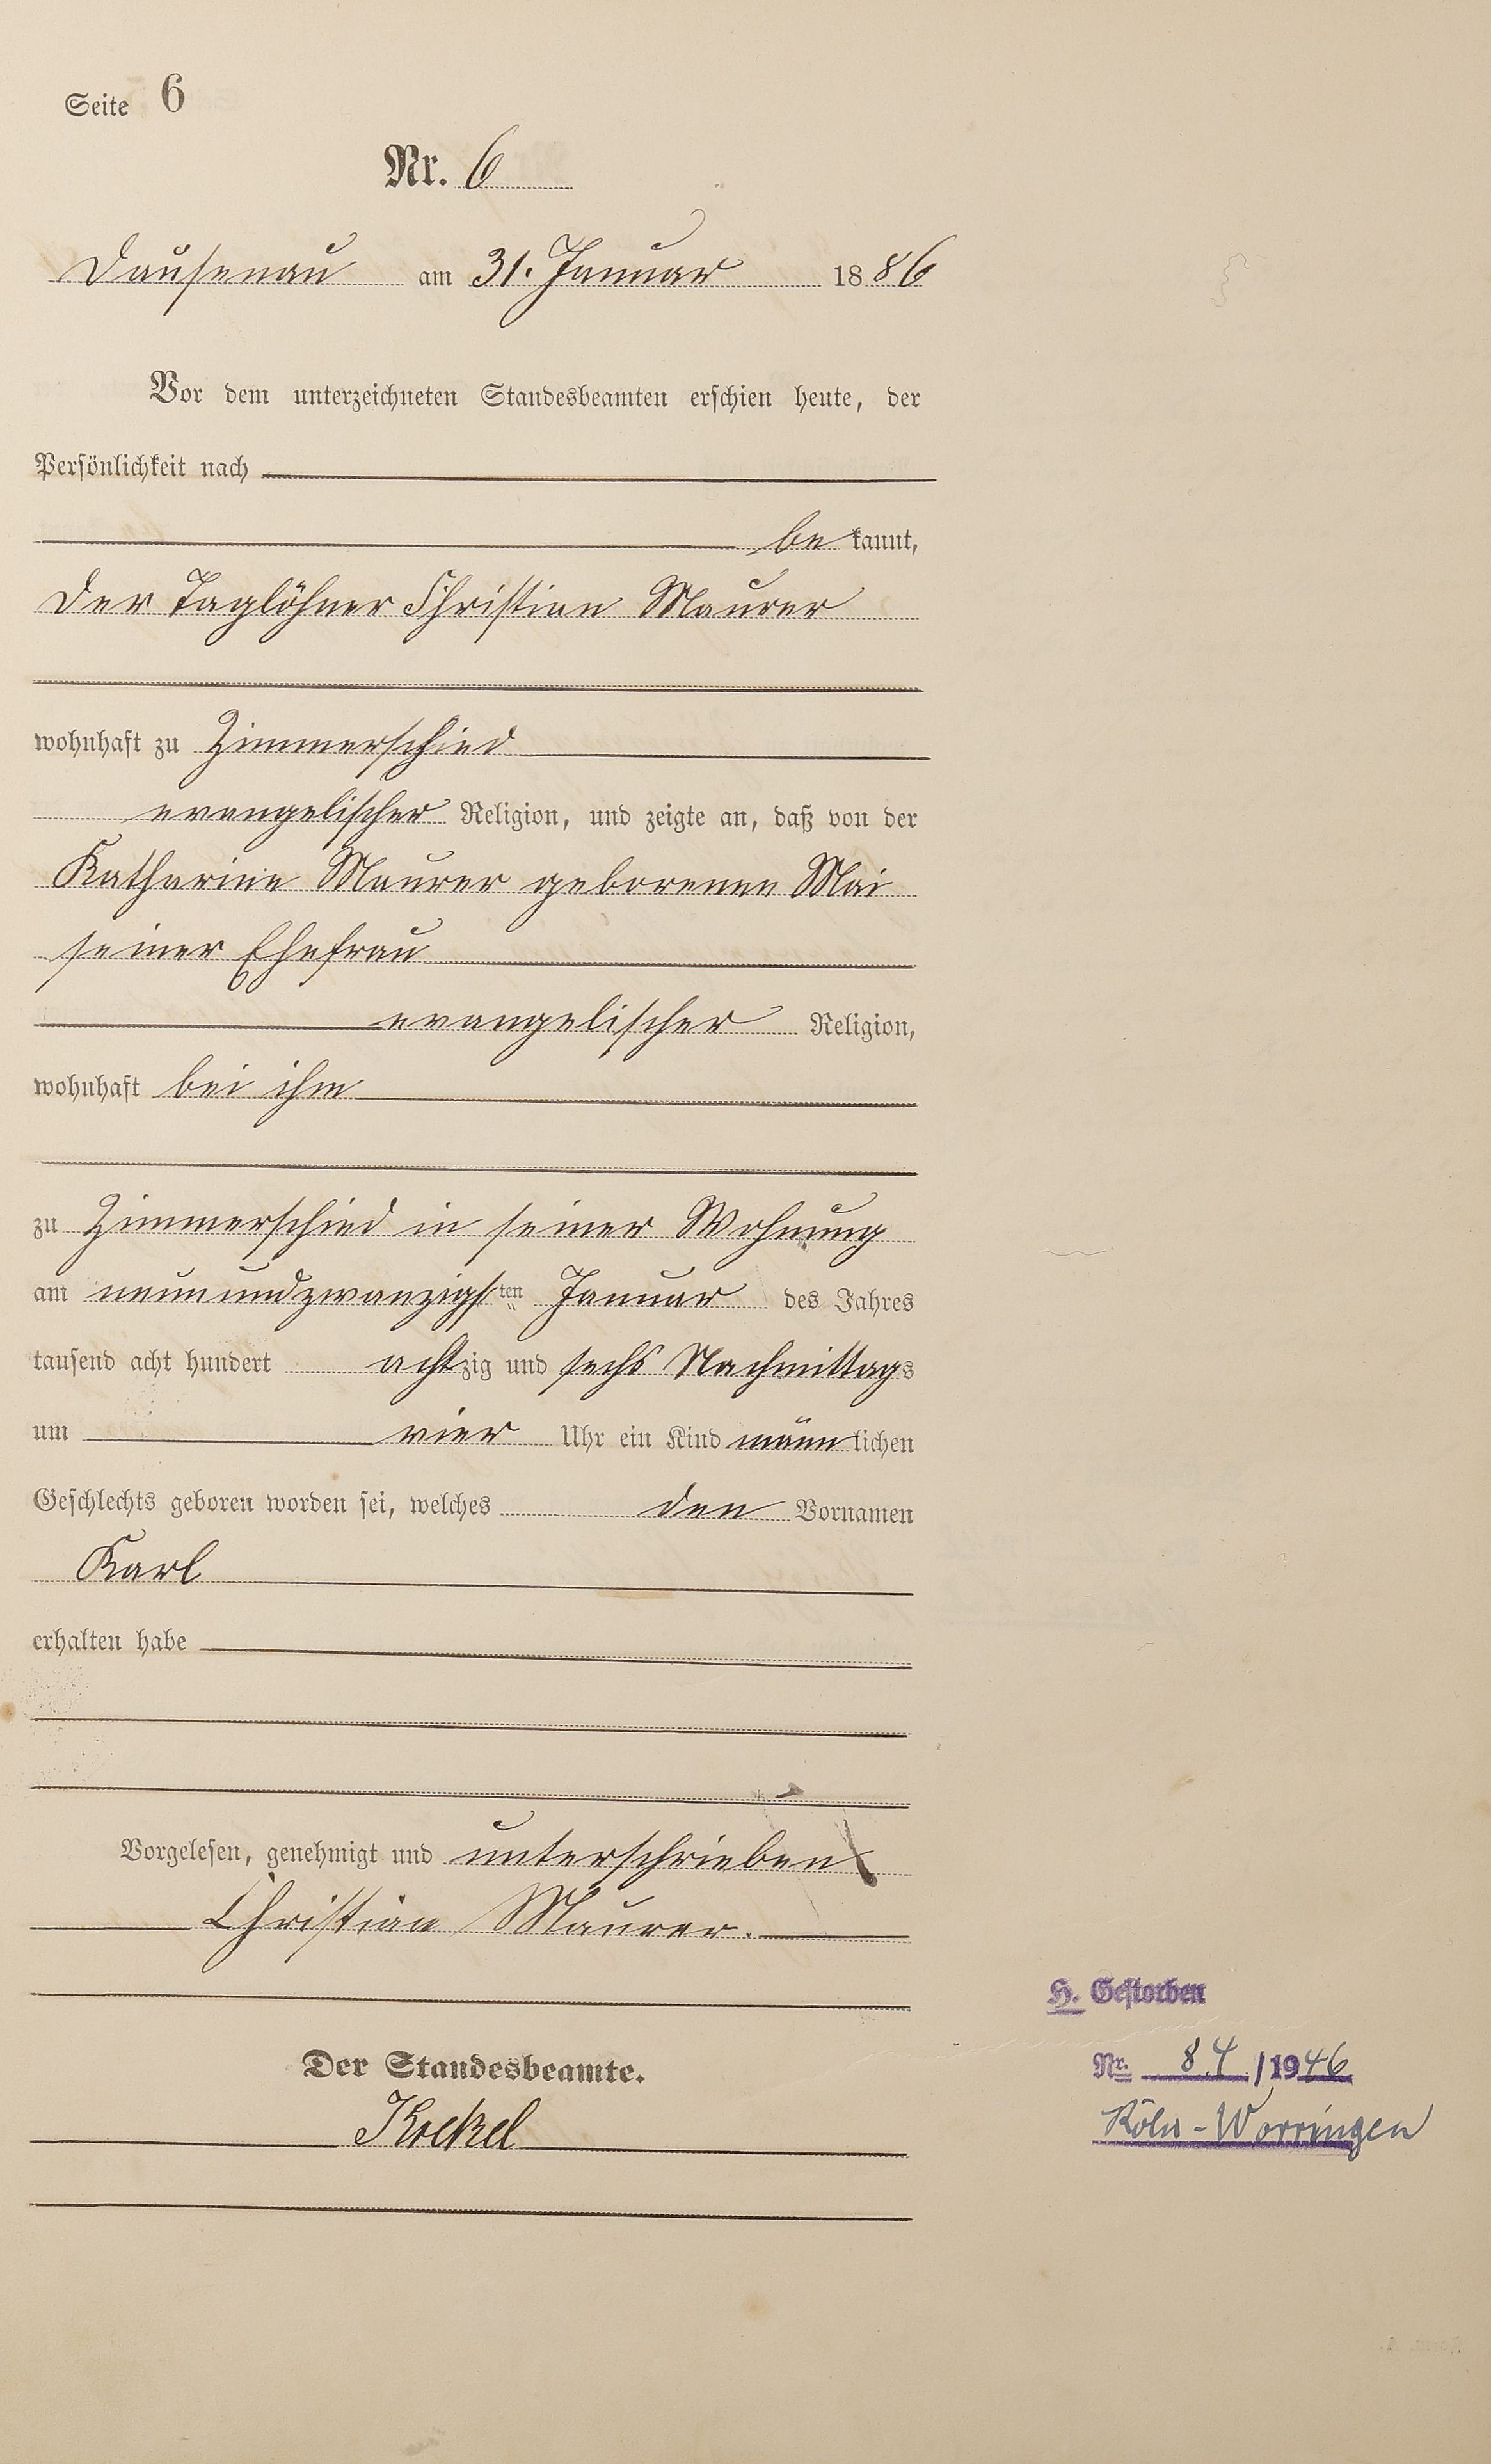 Seite 6
Nr. 6
Dausenau am 31. Januar 1886
Vor dem unterzeichneten Standesbeamten erschien heute, der
Persönlichkeit nach
bekannt,
der Taglöhner Christian Maurer
wohnhaft zu Zimmerschied
evangelischer Religion, und zeigte an, daß von der
Katharine Maurer geborenen Mai
seiner Ehefrau
evangelischer Religion,
wohnhaft bei ihm
zu Zimmerschied in seiner Wohnung
am neunundzwanzigsten Januar des Jahres
tausend acht hundert achtzig und sechs Nachmittags
um vier Uhr ein Kind männlichen
Geschlechts geboren worden sei, welches den Vornamen
Karl
erhalten habe
Vorgelesen, genehmigt und unterschrieben
Christian Maurer.
Der Standesbeamte.
H. Gestorben
Nr. 84/1946
Köln-Worringen